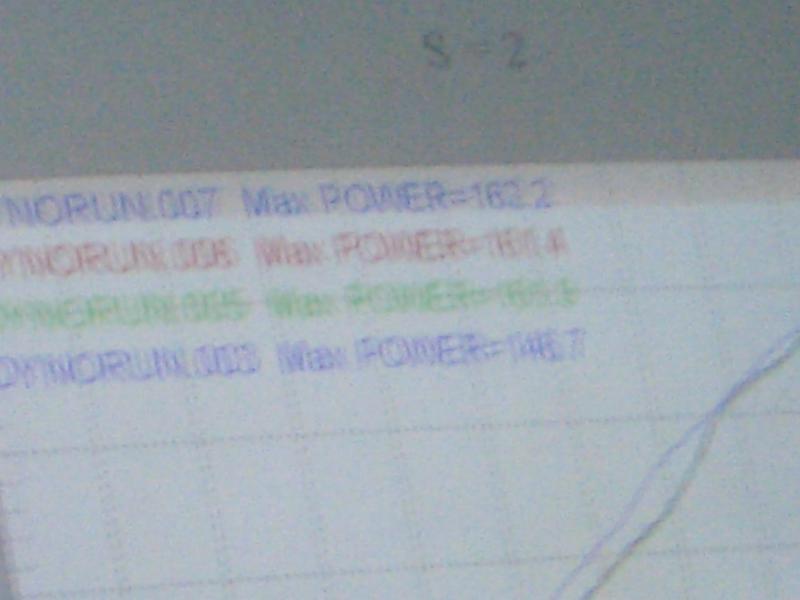 S = 2
YNORUN.007 Max POWER=162.2
YNORUN.006 Max POWER=161.4
DYNORUN.005 Max POWER=
DYNORUN.003 Max POWER=146.7